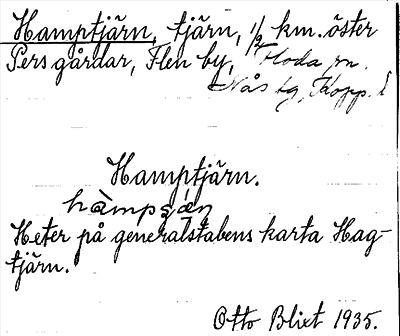 Hamptjärn, tjärn, 1/2 km. öster
Pers gårdar, Flen by, Floda sn.
Nås tg, Kopp. l
Hamptjärn.
hàmpsạ́ṇ
Heter på generalstabens karta Hag-
tjärn.
Otto Blixt 1935.